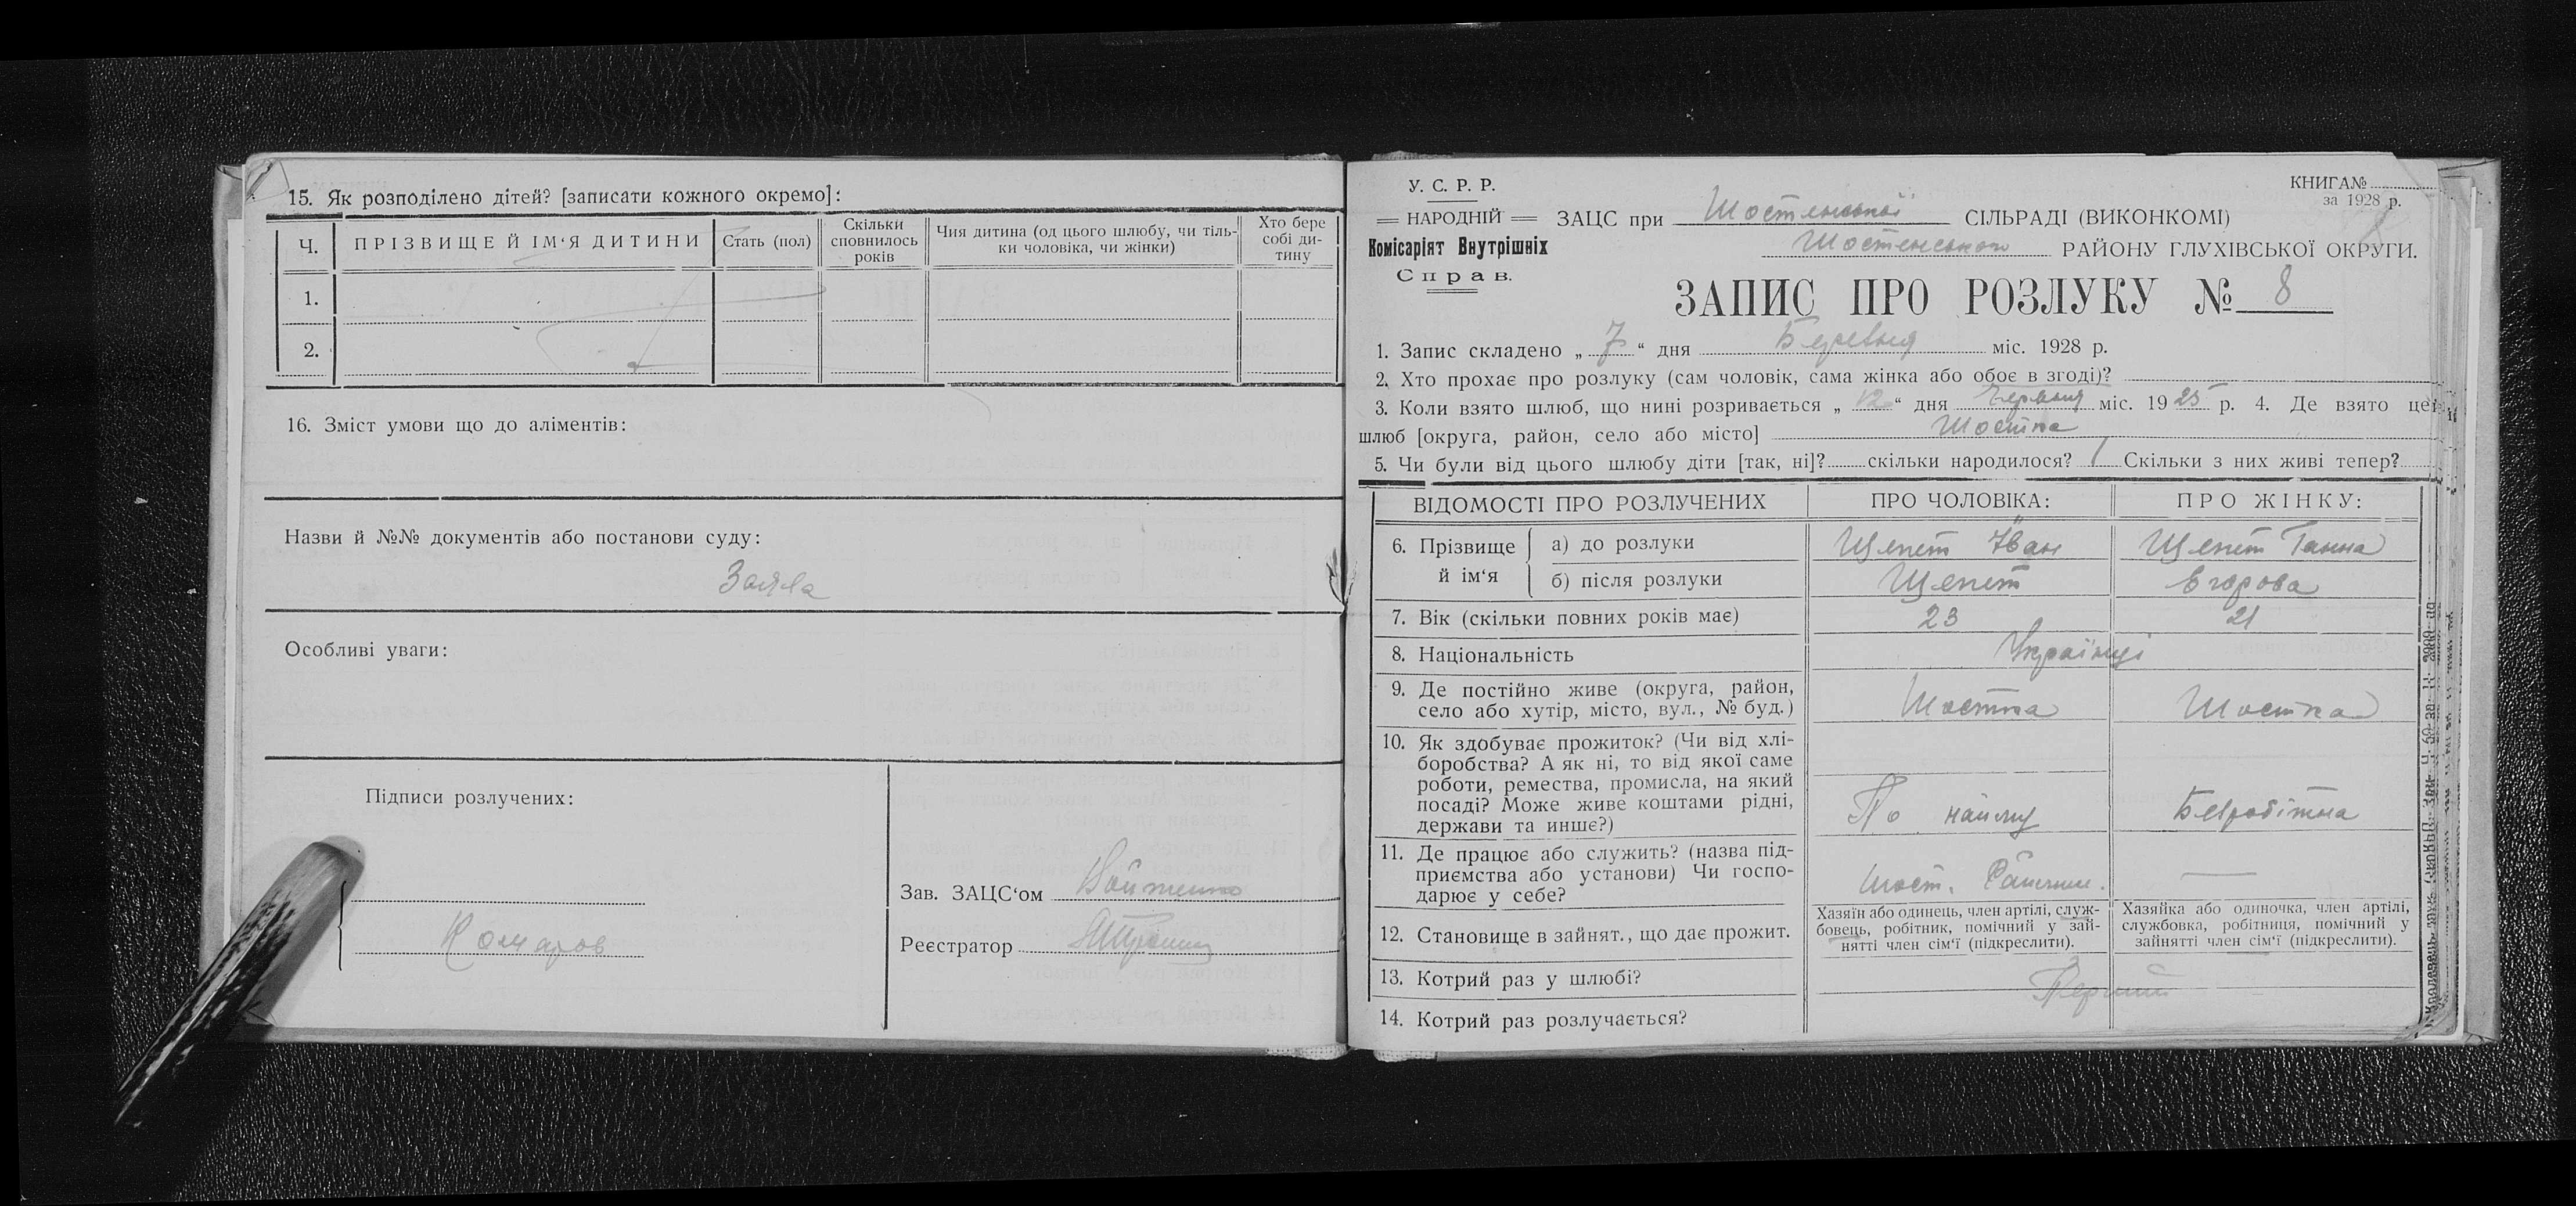 15. Як розподілено дітей? [записати кожного окремо]:
Ч. ПРІЗВИЩЕ Й ІМ'Я ДИТИНИ Стать (пол) Скільки сповнилось років Чия дитина (од цього шлюбу, чи тільки чоловіка, чи жінки) Хто бере собі дитину
1.
2.
16. Зміст умови що до аліментів:
Назви й №№ документів або постанови суду:
Заява
Особливі уваги:
Підписи розлучених:
Комаров
Зав. ЗАЦС'ом Войтенко
Реєстратор
У. С. Р. Р.
НАРОДНІЙ
Комісаріят Внутрішніх
Справ.
КНИГА №
за 1928 р.
ЗАЦС при Шостенської СІЛЬРАДІ (ВИКОНКОМІ)
Шостенського РАЙОНУ ГЛУХІВСЬКОЇ ОКРУГИ.
ЗАПИС ПРО РОЗЛУКУ № 8
1. Запис складено „7“ дня Березня міс. 1928 р.
2. Хто прохає про розлуку (сам чоловік, сама жінка або обоє в згоді)?
3. Коли взято шлюб, що нині розривається „12“ дня Червня міс. 1925 р. 4. Де взято цей
шлюб [округа, район, село або місто] Шостка
5. Чи були від цього шлюбу діти [так, ні]? скільки народилося? / Скільки з них живі тепер?
ВІДОМОСТІ ПРО РОЗЛУЧЕНИХ ПРО ЧОЛОВІКА: ПРО ЖІНКУ:
6. Прізвище й ім'я а) до розлуки Щепет Іван Щепет Ганна
б) після розлуки Щепет Егорова
7. Вік (скільки повних років має) 23 21
8. Національність Українці
9. Де постійно живе (округа, район,
село або хутір, місто, вул., № буд.) Шостка Шостка
10. Як здобуває прожиток? (Чи від хлі-
боробства? А як ні, то від якої саме
роботи, ремества, промисла, на який
посаді? Може живе коштами рідні,
держави та инше?) По найму Безробітна
11. Де працює або служить? (назва під-
приємства або установи) Чи госпо-
дарює у себе? Шост. —
12. Становище в зайнят., що дає прожит.
Хазяїн або одинець, член артілі, служ-
бовець, робітник, помічний у зай-
нятті член сім'ї (підкреслити).
Хазяйка або одиночка, член артілі,
службовка, робітниця, помічний у
зайнятті член сім'ї (підкреслити).
13. Котрий раз у шлюбі? Перший
14. Котрий раз розлучається?